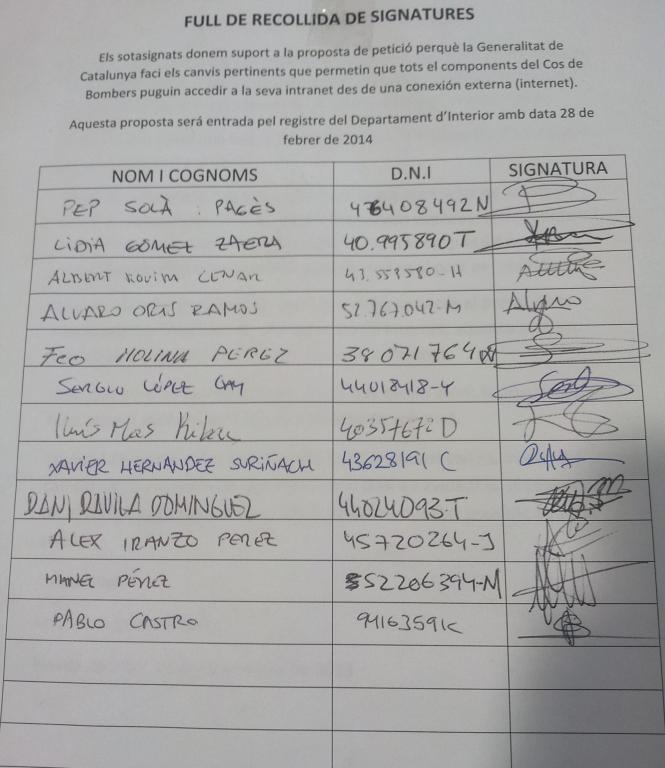 FULL DE RECOLLIDA DE SIGNATURES
Els sotasignats donem suport a la proposta de petició perquè la Generalitat de
Catalunya faci els canvis pertinents que permetin que tots el components del Cos de
Bombers puguin accedir a la seva intranet des de una conexión externa (internet).
Aquesta proposta será entrada pel registre del Departament d'Interior amb data 28 de
febrer de 2014
NOM I COGNOMS D.N.I SIGNATURA
PEP SOLÀ PAGÈS 46408492N
LIDIA GOMEZ ZAERA 40.995890T
ALBERT 43.553580-H
ALVARO ORIS RAMOS 52.767.042-M Alvaro
Fco MOLINA PEREZ 38071764
SERGIO LÓPEZ GAY 44018418-Y
Lluís Mas 40357672D
XAVIER HERNANDEZ SURIÑACH 43628191 C
DANI DAVILA DOMINGUEZ 44024093-T
ALEX IRANZO PEREZ 45720264-J
MANEL PÉREZ 52206394-M
PABLO CASTRO